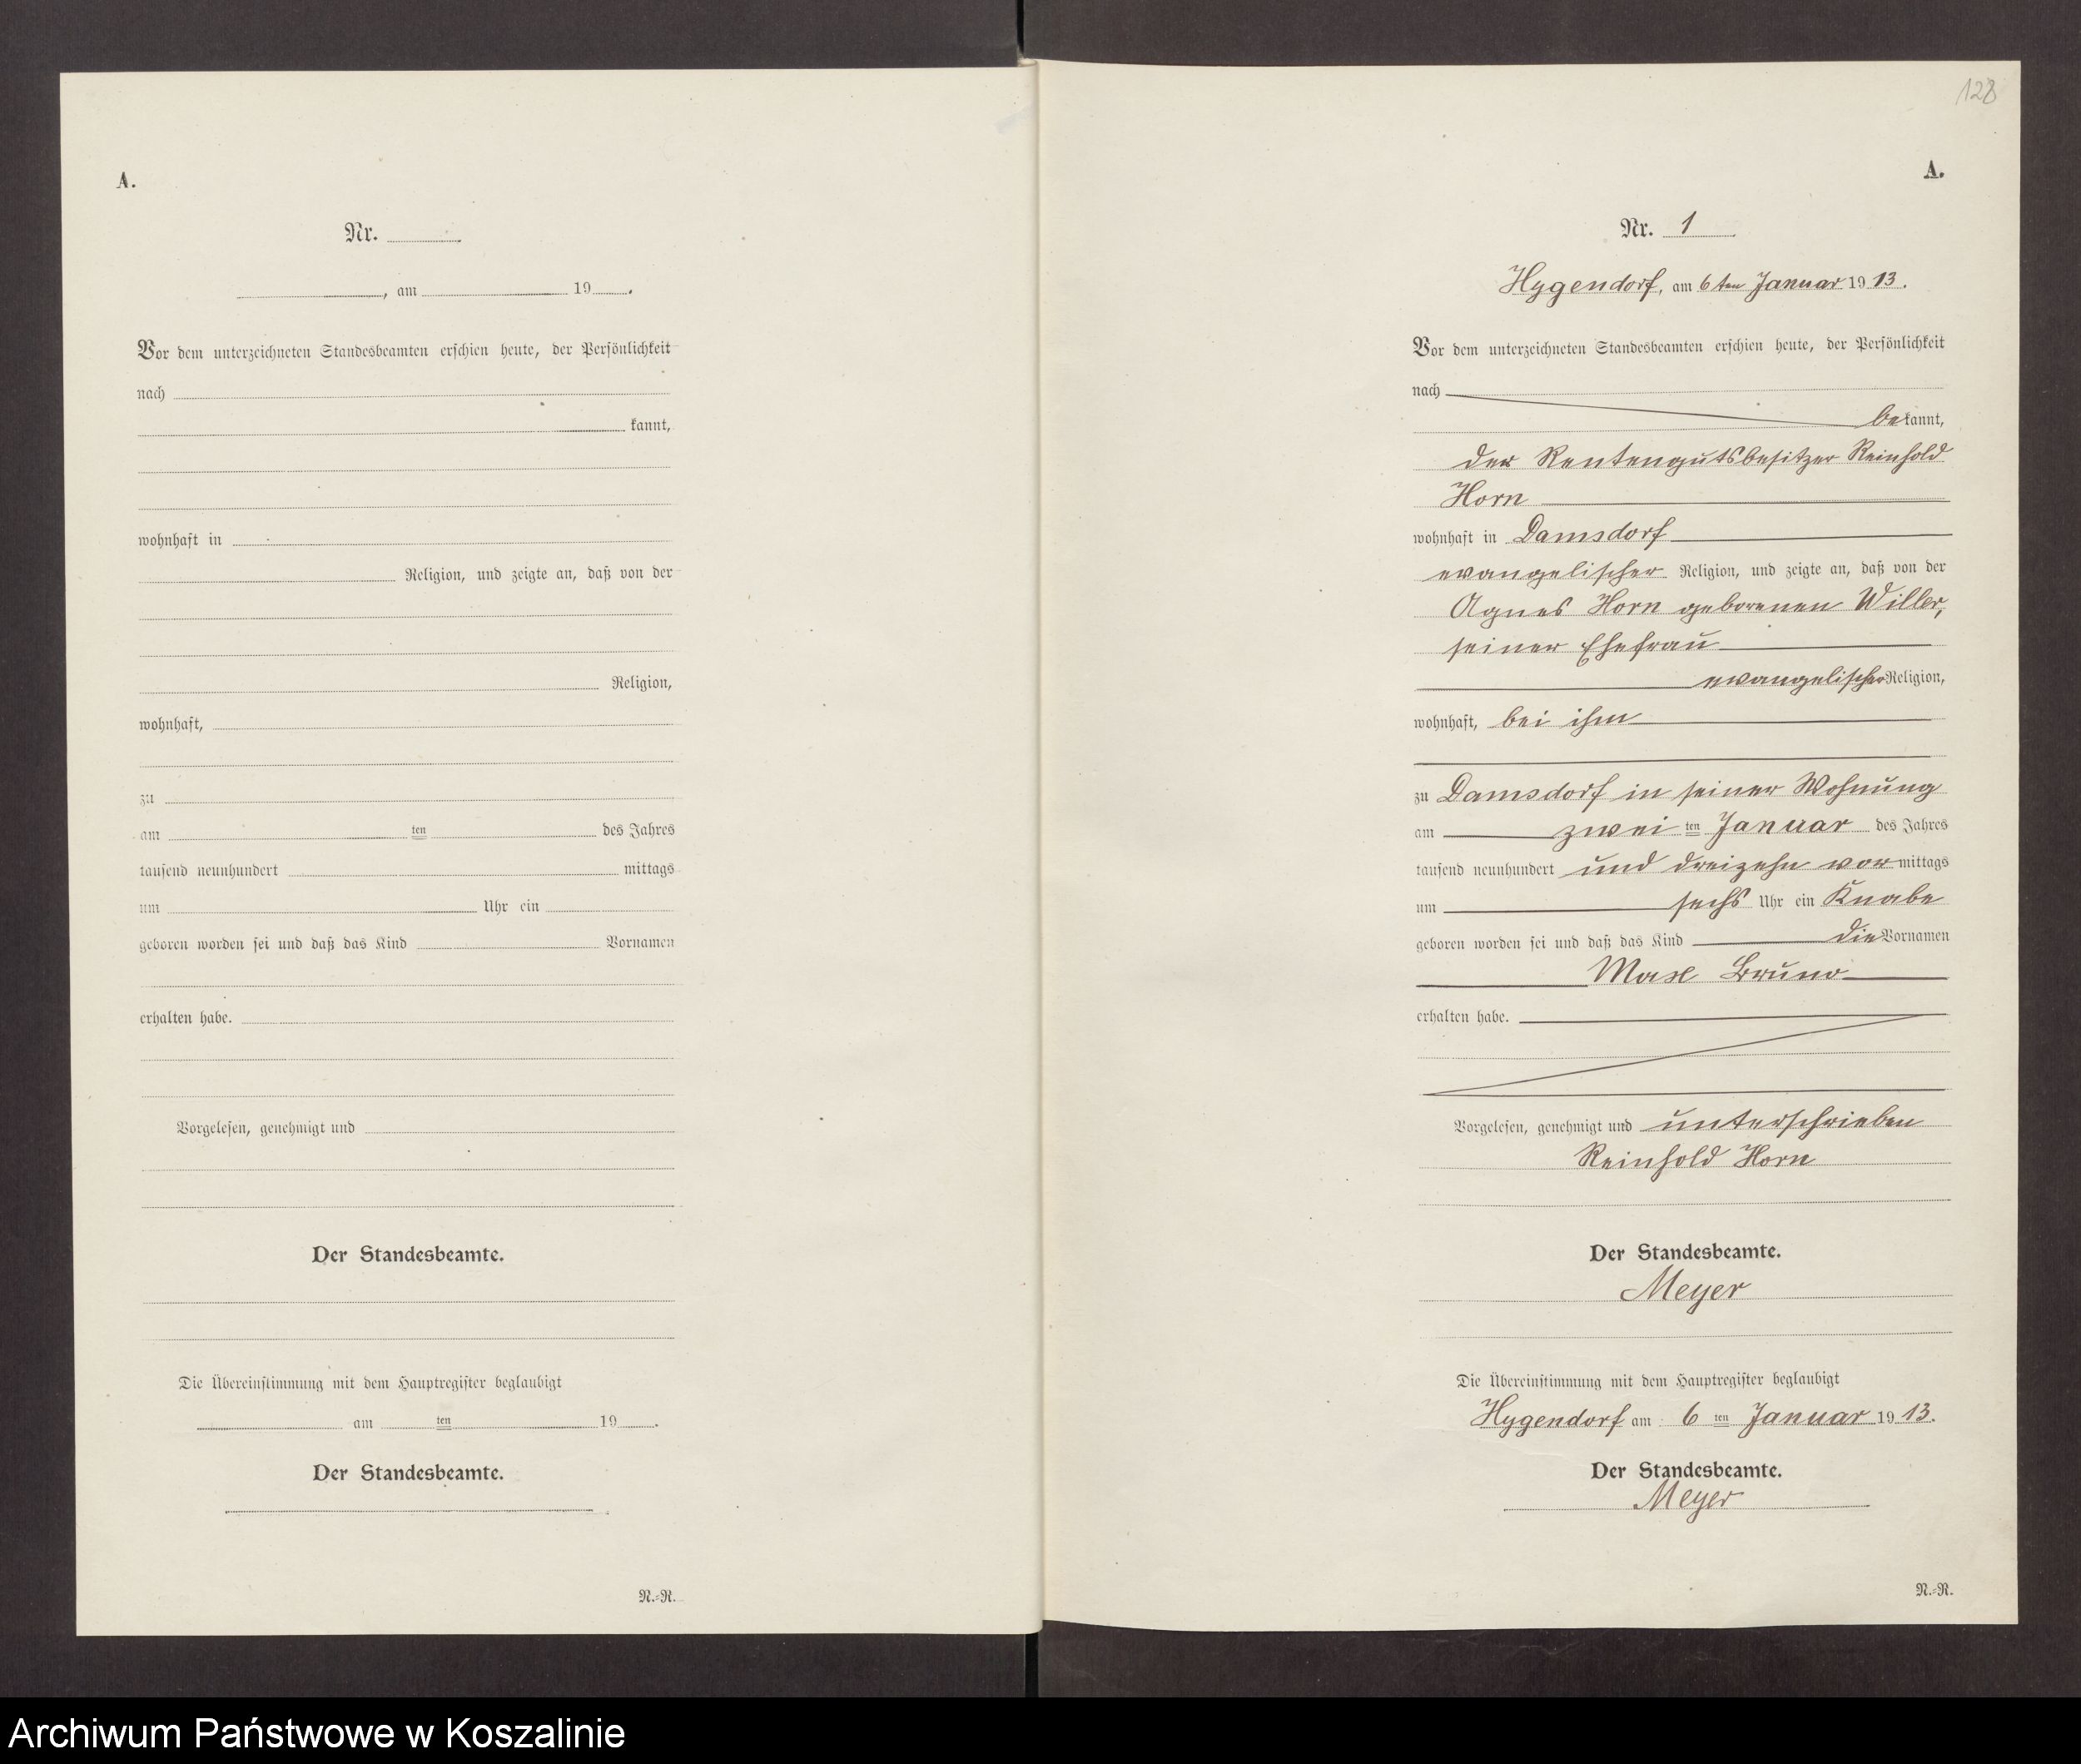 A.
Nr.
, am 19 .
Vor dem unterzeichneten Standesbeamten erschien heute, der Persönlichkeit
nach
kannt,
wohnhaft in
Religion, und zeigte an, daß von der
Religion,
wohnhaft,
zu
am ten des Jahres
tausend neunhundert mittags
um Uhr ein
geboren worden sei und daß das Kind Vornamen
erhalten habe.
Vorgelesen, genehmigt und
Der Standesbeamte.
Die Übereinstimmung mit dem Hauptregister beglaubigt
am ten 19 .
Der Standesbeamte.
N.=R.
128
A.
Nr. 1
Hygendorf, am 6ten Januar 1913.
Vor dem unterzeichneten Standesbeamten erschien heute, der Persönlichkeit
nach
bekannt,
der Rentengutsbesitzer Reinhold
Horn
wohnhaft in Damsdorf
evangelischer Religion, und zeigte an, daß von der
Agnes Horn geborenen Willer,
seiner Ehefrau
evangelischer Religion,
wohnhaft, bei ihm
zu Damsdorf in seiner Wohnung
am zweiten Januar des Jahres
tausend neunhundert und dreizehn vormittags
um sechs Uhr ein Knabe
geboren worden sei und daß das Kind die Vornamen
Max Bruno
erhalten habe.
Vorgelesen, genehmigt und unterschrieben
Reinhold Horn
Der Standesbeamte.
Meyer
Die Übereinstimmung mit dem Hauptregister beglaubigt
Hygendorf am 6 ten Januar 1913.
Der Standesbeamte.
Meyer
N.=R.
Archiwum Państwowe w Koszalinie